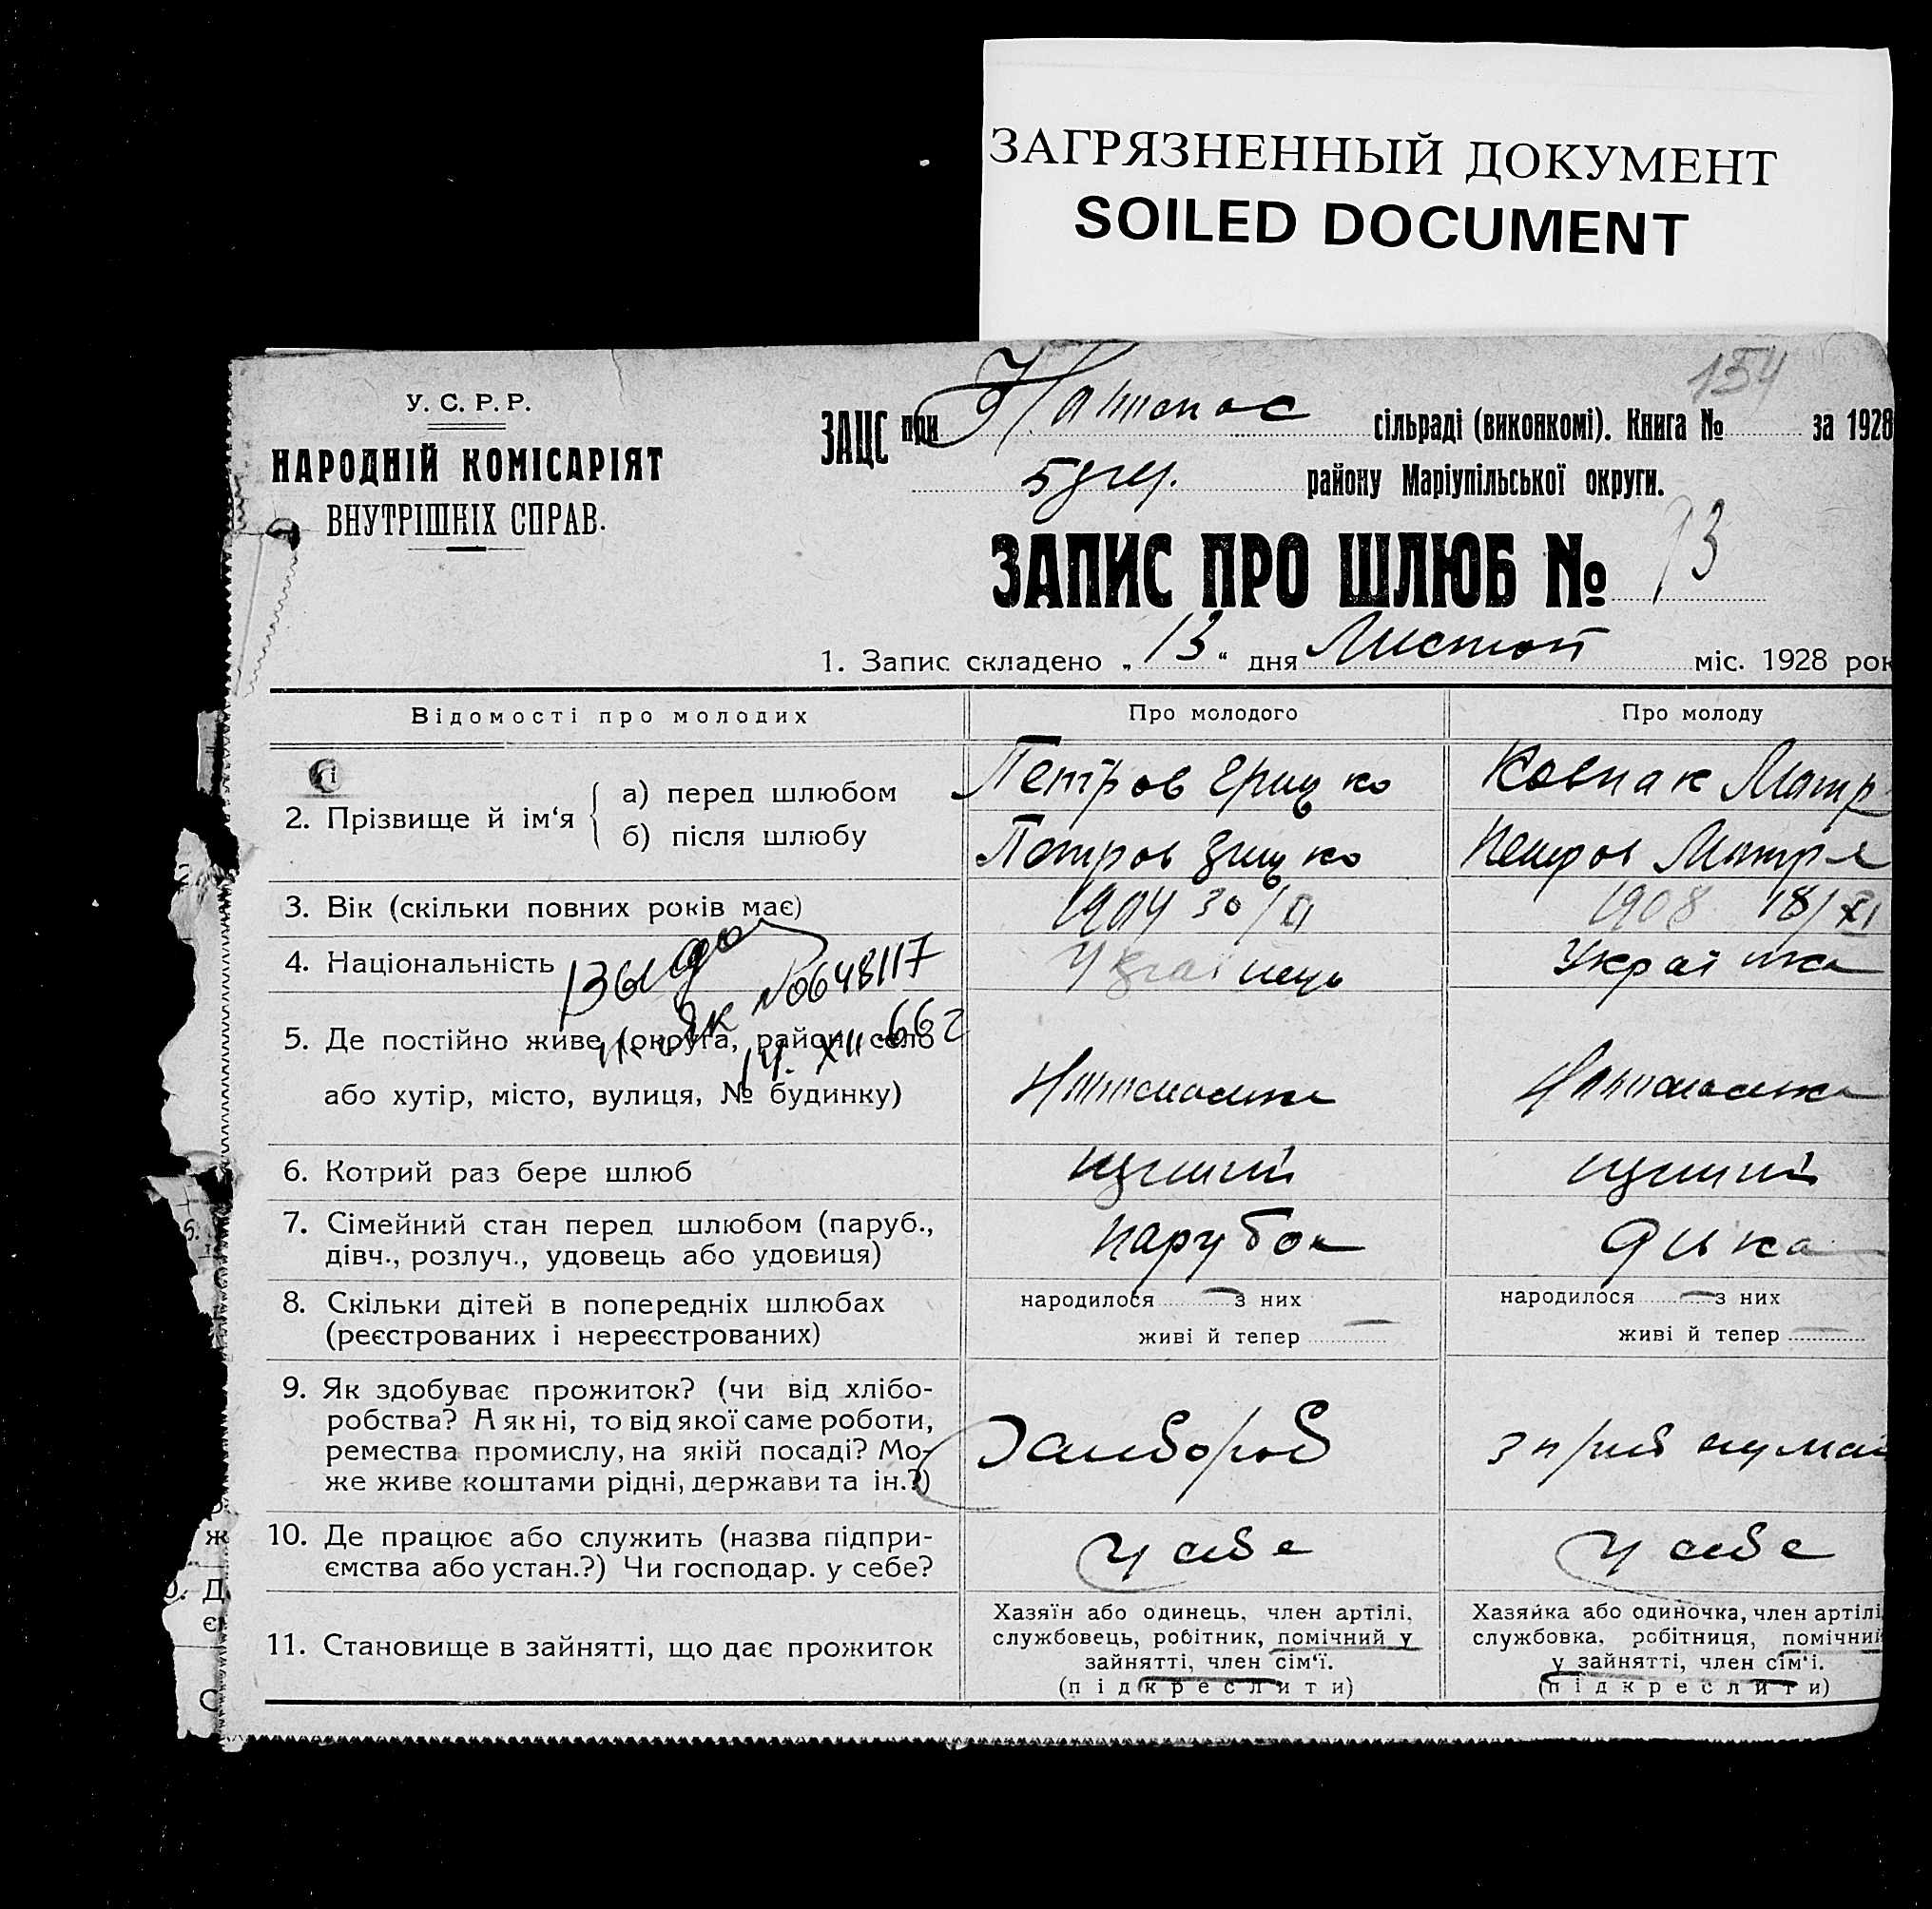 ЗАГРЯЗНЕННЫЙ ДОКУМЕНТ
SOILED DOCUMENT
154
У. С. Р. Р.
НАРОДНІЙ КОМІСАРІЯТ
ВНУТРІШНІХ СПРАВ.
ЗАЦС при сільраді (виконкомі). Книга № за 1928
району Маріупільської округи.
ЗАПИС ПРО ШЛЮБ № 93
1. Запис складено „ 13 “ дня Листоп міс. 1928 рок
Відомості про молодих Про молодого Про молоду
2. Прізвище й ім‘я
а) перед шлюбом Петров Грицько Ковпак Мотр
б) після шлюбу Петров Грицько Петров Мотря
3. Вік (скільки повних років має) 1904 30/ 1908 18/XI
4. Національність Українець Українка
№ 0648117
14. XII 66 г
5. Де постійно живе (округа, район, село
або хутір, місто, вулиця, № будинку)
6. Котрий раз бере шлюб перший перший
7. Сімейний стан перед шлюбом (паруб.,
дівч., розлуч., удовець або удовиця) парубок дівка
8. Скільки дітей в попередніх шлюбах народилося з них народилося з них
(реєстрованих і нереєстрованих) живі й тепер живі й тепер
9. Як здобуває прожиток? (чи від хлібо-
робства? А як ні, то від якої саме роботи,
ремества промислу, на якій посаді? Мо-
же живе коштами рідні, держави та ін.?)
Хлібороб
10. Де працює або служить (назва підпри-
ємства або устан.?) Чи господар. у себе? у себе у себе
11. Становище в зайнятті, що дає прожиток
Хазяїн або одинець, член артілі,
службовець, робітник, помічний у
зайнятті, член сім‘ї.
(підкреслити)
Хазяйка або одиночка, член артілі,
службовка, робітниця, помічний
у зайнятті, член сім‘ї.
(підкреслити)